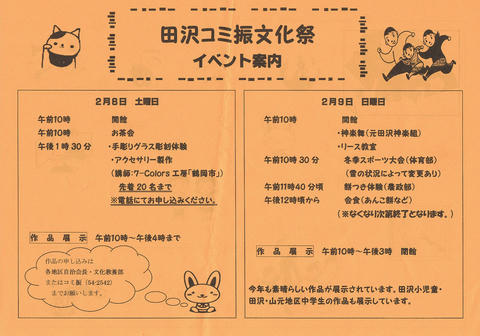 田沢コミ振文化祭
イベント案内
2月8日 土曜日
午前10時 開館
午前10時 お茶会
午後1時30分 ・手彫りグラス彫刻体験
・アクセサリー製作
(講師:7-Colors工房「鶴岡市」)
先着20名まで
※電話にてお申し込みください。
作品展示 午前10時~午後4時まで
作品の申し込みは
各地区自治会長・文化教養部
またはコミ振(54-2542)
までお願いします。
2月9日 日曜日
午前10時 開館
・神楽舞(元田沢神楽組)
・リース教室
午前10時30分 冬季スポーツ大会(体育部)
(雪の状況によって変更あり)
午前11時40分頃 餅つき体験(農政部)
午後12時頃から 会食(あんこ餅など)
(※なくなり次第終了となります。)
作品展示 午前10時~午後3時 閉館
今年も素晴らしい作品が展示されています。田沢小児童・
田沢・山元地区中学生の作品も展示しています。